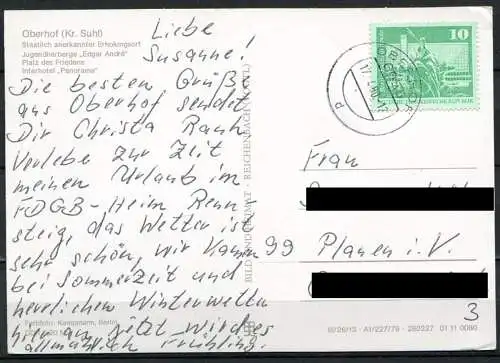 Oberhof (Kr. Suhl)
Staatlich anerkannter Erholungsort
Jugendherberge „Edgar André"
Platz des Friedens
Interhotel „Panorama"
Liebe
Susanne!
Die besten Grüße
aus Oberhof sendet
Dir Christa Rank
Verlebe zur Zeit
meinen Urlaub im
FDGB-Heim Renn-
steig, das Wetter ist
sehr schön, wir kamen
bei Sommerzeit und
herrlichen Winterwetter
hier an, jetzt wird es
allmählich Frühling.
BILD UND HEIMAT REICHENBACH (VOGTL)
10
OBERHOF
Frau
99 Plauen i. V.
3
Farbfoto: Kampmann, Berlin
B/26/13 A1/227/79 280227 01 11 0080